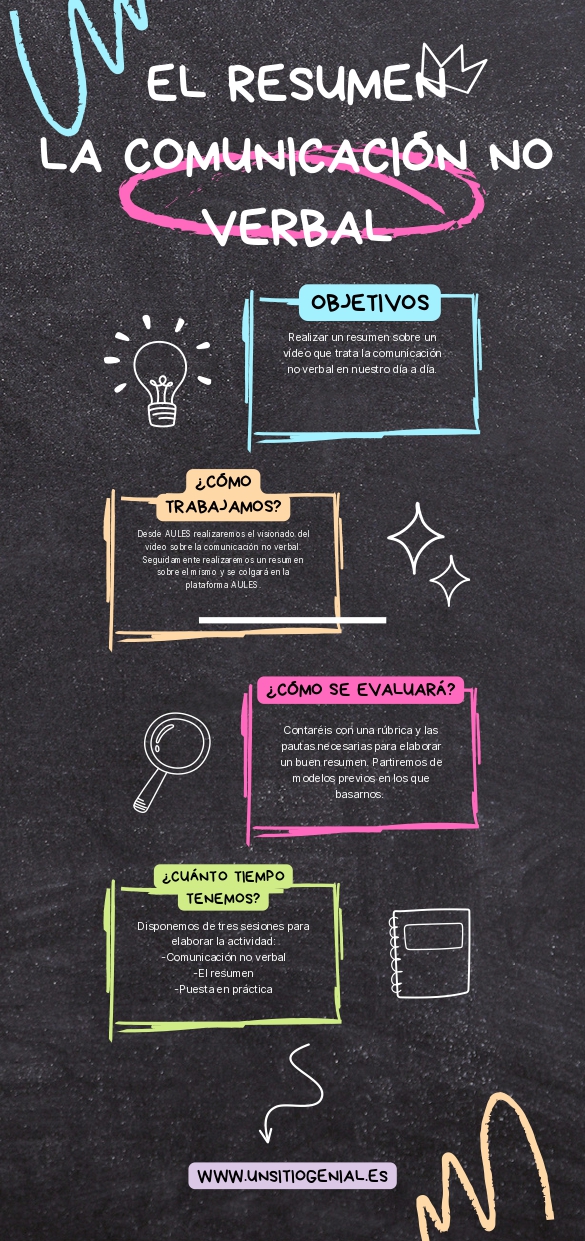 EL RESUMEN
LA COMUNICACIÓN NO
VERBAL
OBJETIVOS
Realizar un resumen sobre un
vídeo que trata la comunicación
no verbal en nuestro día a día.
¿CÓMO
TRABAJAMOS?
Desde AULES realizaremos el visionado del
vídeo sobre la comunicación no verbal.
Seguidamente realizaremos un resumen
sobre el mismo y se colgará en la
plataforma AULES.
¿CÓMO SE EVALUARÁ?
Contaréis con una rúbrica y las
pautas necesarias para elaborar
un buen resumen. Partiremos de
modelos previos en los que
basarnos.
¿CUÁNTO TIEMPO
TENEMOS?
Disponemos de tres sesiones para
elaborar la actividad:
-Comunicación no verbal
-El resumen
-Puesta en práctica
WWW.UNSITIOGENIAL.ES